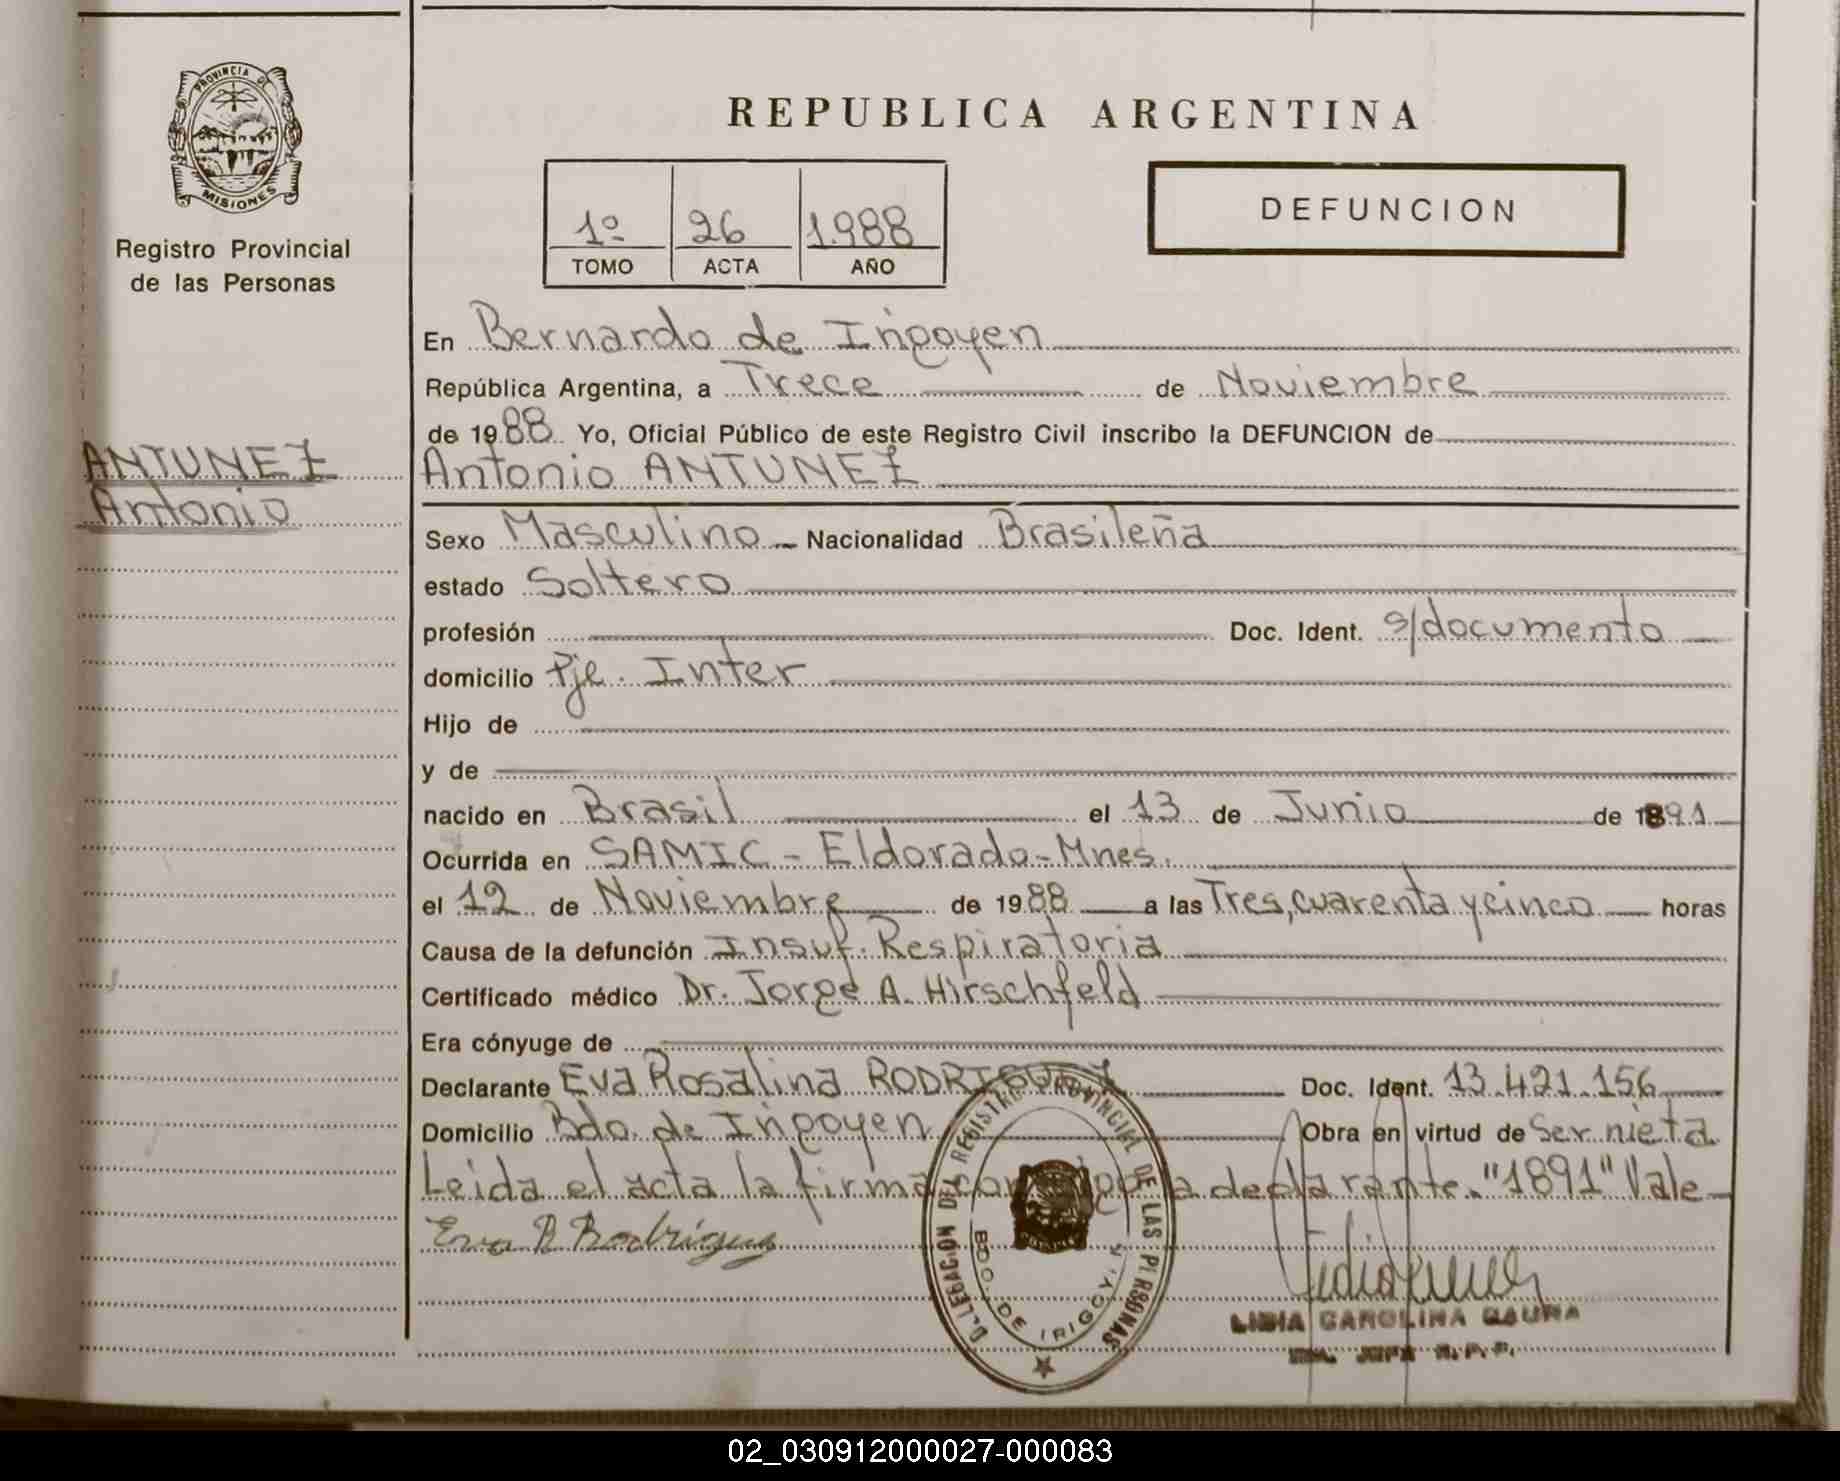 PROVINCIA DE
MISIONES
Registro Provincial
de las Personas
ANTUNEZ
Antonio
REPUBLICA ARGENTINA
1º 26 1.988
TOMO ACTA AÑO
DEFUNCION
En Bernardo de Irigoyen
República Argentina, a Trece de Noviembre
de 1988 Yo, Oficial Público de este Registro Civil inscribo la DEFUNCION de
Antonio ANTUNEZ
Sexo Masculino Nacionalidad Brasileña
estado Soltero
profesión Doc. Ident. s/documento
domicilio Pje. Inter
Hijo de
y de
nacido en Brasil el 13 de Junio de 1891
Ocurrida en SAMIC - Eldorado - Mnes.
el 12 de Noviembre de 1988 a las Tres, cuarenta y cinco horas
Causa de la defunción Insuf. Respiratoria
Certificado médico Dr. Jorge A. Hirschfeld
Era cónyuge de
Declarante Eva Rosalina RODRIGUEZ Doc. Ident. 13.421.156
Domicilio Bdo. de Irigoyen Obra en virtud de Ser nieta
Leida el acta la firma conmigo la declarante. "1891" Vale
Eva R Rodríguez
DELEGACION DEL REGISTRO PROVINCIAL DE LAS PERSONAS
BDO. DE IRIGOYEN
LIDIA CAROLINA
02_030912000027-000083